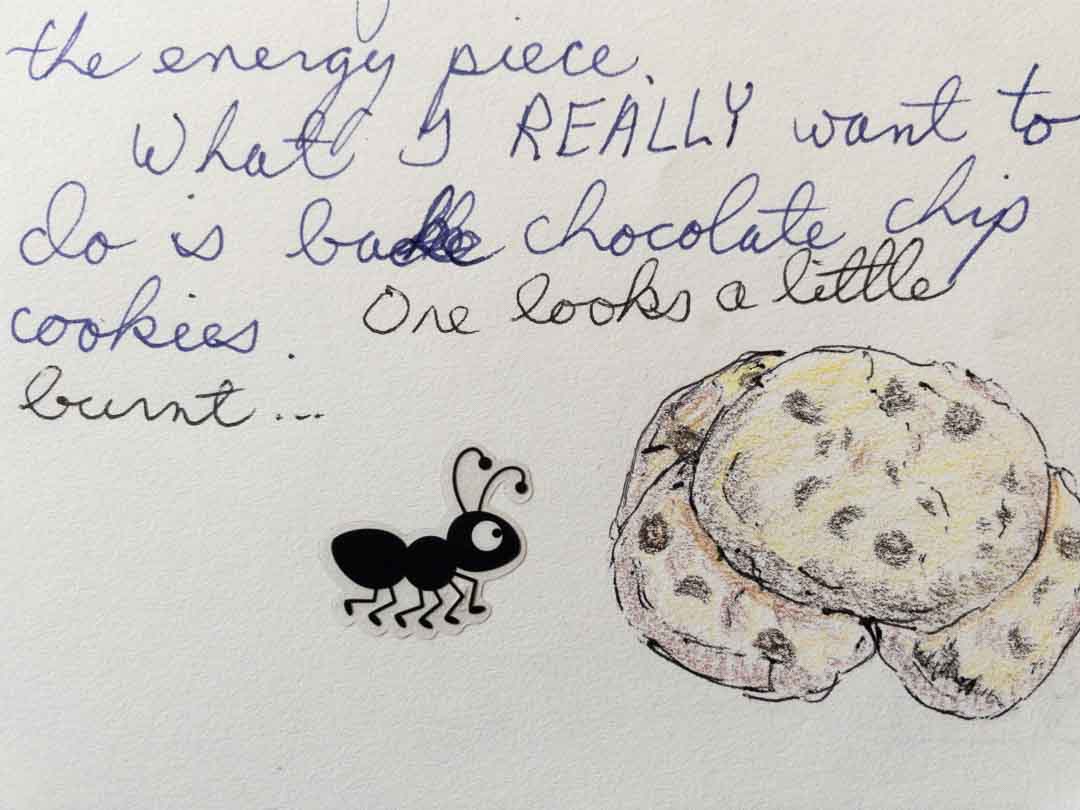 the energy piece.
What I REALLY want to
do is bake chocolate chip
cookies. One looks a little
burnt...